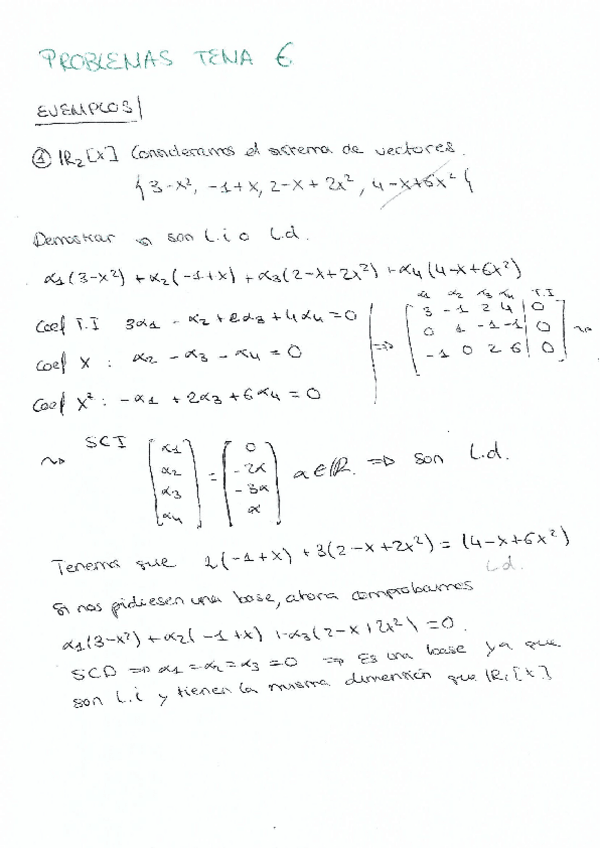 PROBLEMAS TEMA 6
EJEMPLOS/
① ℝ₂[x] Consideramos el sistema de vectores.
{3-x², -1+x, 2-x+2x², 4-x+6x²}
Demostrar si son l.i o l.d.
α₁(3-x²) + α₂(-1+x) + α₃(2-x+2x²) + α₄(4-x+6x²)
α₁ α₂ α₃ α₄ T.I
Coef T.I 3α₁ - α₂ + 2α₃ + 4α₄ = 0 ⇒ [3 -1 2 4 | 0
Coef x : α₂ - α₃ - α₄ = 0 0 1 -1 -1 | 0
Coef x² : -α₁ + 2α₃ + 6α₄ = 0 -1 0 2 6 | 0] ~
~ SCI [α₁ α₂ α₃ α₄] = [0 -2α -3α α] α∈ℝ ⇒ son l.d.
Tenemos que 2(-1+x) + 3(2-x+2x²) = (4-x+6x²)
l.d.
Si nos pidiesen una base, ahora comprobamos
α₁(3-x²) + α₂(-1+x) + α₃(2-x+2x²) = 0.
SCD ⇒ α₁=α₂=α₃=0 ⇒ Es una base ya que
son l.i y tienen la misma dimensión que ℝ₂[x]